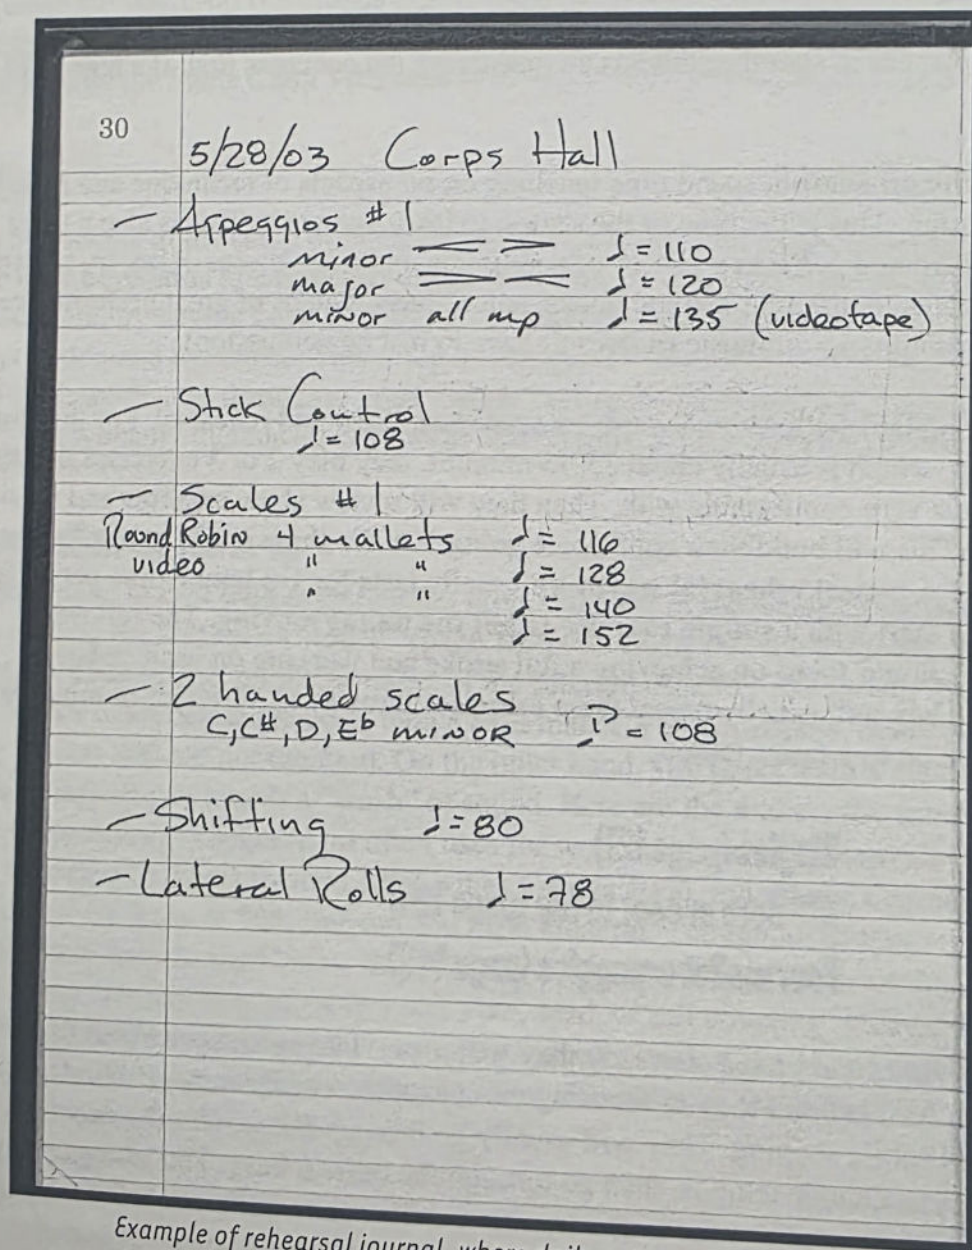 30
5/28/03 Corps Hall
— Arpeggios #1
minor < > ♩ = 110
major > < ♩ = 120
minor all mp ♩ = 135 (videotape)
— Stick Control
♩ = 108
— Scales #1
Round Robin 4 mallets ♩ = 116
video " " ♩ = 128
" " ♩ = 140
♩ = 152
— 2 handed scales
C, C#, D, Eb minor = 108
— Shifting ♩ = 80
— Lateral Rolls ♩ = 78
Example of rehearsal journal,